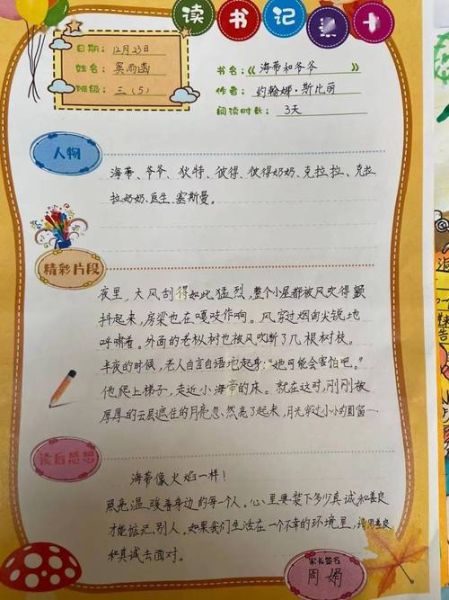 读书记录卡
日期：12月23日
姓名：吴雨菡
班级：三（5）
书名：《海蒂和爷爷》
作者：约翰娜·斯比丽
阅读时长：3天
人物
海蒂、爷爷、狄特、彼得、彼得奶奶、克拉拉、克拉
拉奶奶、医生、塞斯曼。
精彩片段
夜里，大风刮得如此猛烈，整个小屋都被风吹得颤
抖起来，房梁也在嘎吱作响。风穿过烟囱火锐地
呼啸着。外面的老枞树也被风吹断了几根树枝。
半夜的时候，老人自言自语地起身："她可能会害怕吧。"
他爬上梯子，走近小海蒂的床。就在这时，刚刚被
厚厚的云层遮住的月亮忽然亮了起来，月光穿过小小的圆窗一
读后感想
海蒂像火焰一样！
照亮温暖着身边的每一个人。心里要装下多少真诚和善良
才能惦记别人，如果我们生活在一个不幸的环境里，请用善良
和真诚去面对。
家长签名
周娟